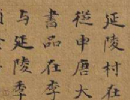 延陵村在
從申曆大
書品在李
与延陵季